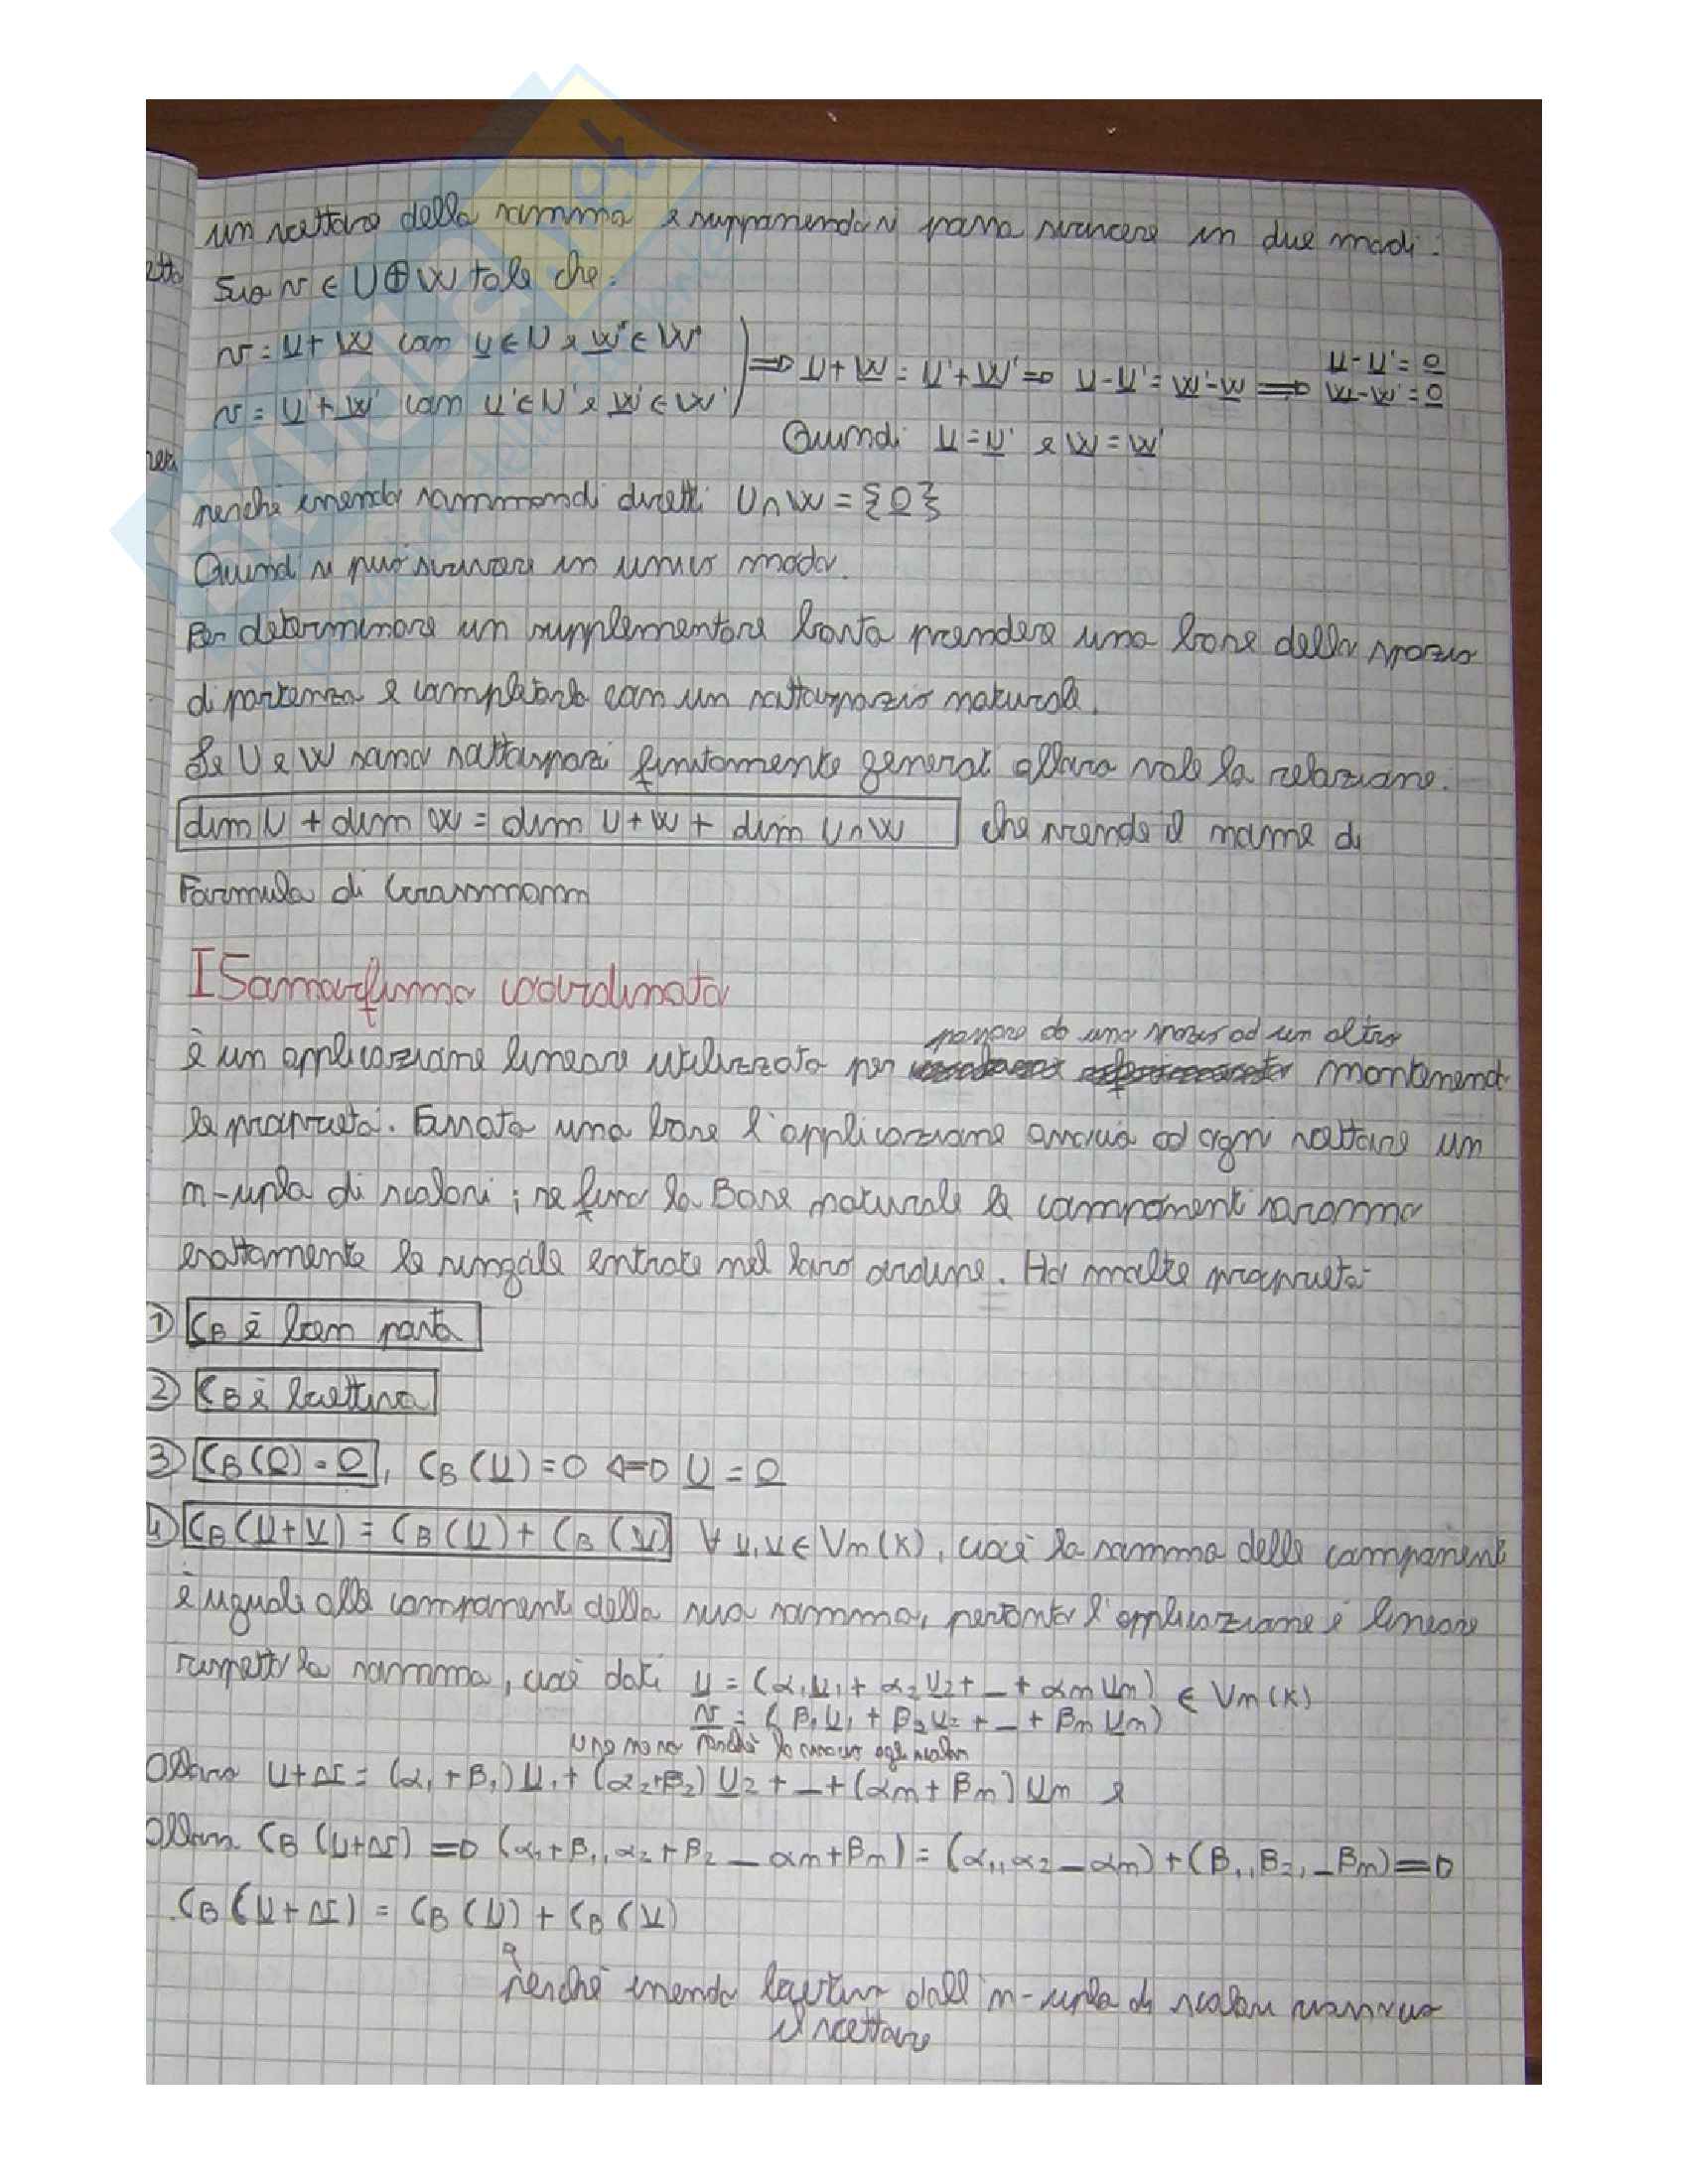 un vettore della somma e supponendo si possa scrivere in due modi:
Sia v ∈ U⊕W tale che:
v = u + w con u ∈ U e w ∈ W
v = u' + w' con u' ∈ U e w' ∈ W
⇒ u + w = u' + w' ⇒ u - u' = w' - w ⇒ u - u' = 0
w - w' = 0
Quindi u = u' e w = w'
perché essendo sommandi diretti U∩W = {0}
Quindi si può scrivere in unico modo.
Per determinare un supplementare basta prendere una base dello spazio
di partenza e completarla con un sottospazio naturale.
Se U e W sono sottospazi finitamente generati allora vale la relazione.
dim U + dim W = dim U+W + dim U∩W che prende il nome di
Formula di Grassmann
ISomorfismo coordinato
passare da uno spazio ad un altro
è un applicazione lineare utilizzata per mantenendo
le proprietà. Fissata una base l'applicazione associa ad ogni vettore un
n-upla di scalari; se fisso la Base naturale le componenti saranno
esattamente le singole entrate nel loro ordine. Ha molte proprietà
① CB è ben posta
② CB è biettiva
③ CB(0) = 0, CB(u) = 0 ⇔ u = 0
④ CB(u+v) = CB(u) + CB(v) ∀ u, v ∈ Vn(K), cioè la somma delle componenti
è uguale alle componenti della sua somma, pertanto l'applicazione è lineare
rispetto la somma, cioè dati u = (α1u1 + α2u2 + _ + αnun) ∈ Vn(K)
v = (β1u1 + β2u2 + _ + βnun)
perché la
Allora u+v = (α1+β1)u1 + (α2+β2)u2 + _ + (αn+βn)un e
Allora CB(u+v) ⇒ (α1+β1, α2+β2 _ αn+βn) = (α1, α2 _ αn) + (β1, β2, _ βn) ⇒
CB(u+v) = CB(u) + CB(v)
Perché essendo biettiva dall'n-upla di scalari
il vettore